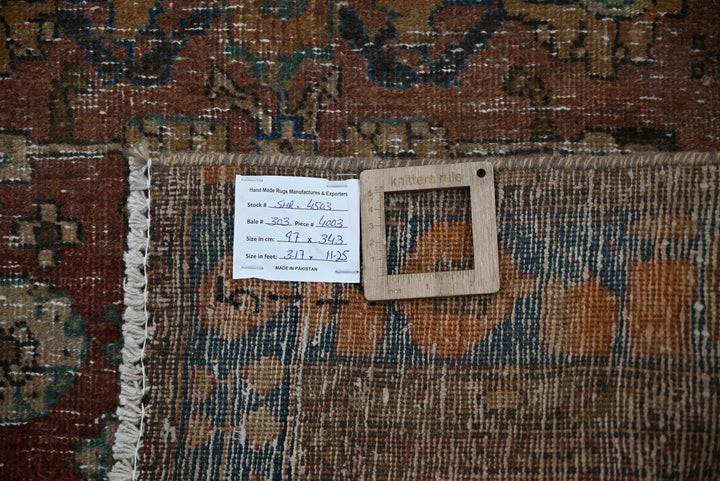 Hand Made Rugs Manufactures & Exporters
Stock # SHR. 4503
Bale # 303 Piece # 4003
Size in cm: 97 x 343
Size in feet: 3.17 x 11.25
MADE IN PAKISTAN
knitters rule